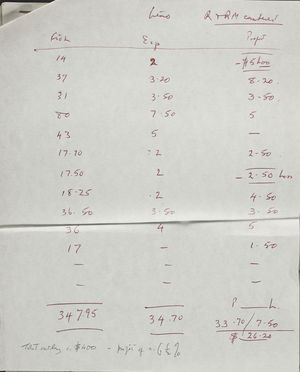 R & RM combined
Fish Exp Profit
14 2 - $5.00
37 3.20 8.20
31 3.50 3.50
80 7.50 5
43 5 —
17.70 .2 2.50
17.50 2 - 2.50 Loss
18.25 .2 4.50
36.50 3.50 3.50
36 4 5
17 — 1.50
— — —
— — —
P L
347.95 34.70 33.70/7.50
$ 26.20
= $400 - profit of = 6½%